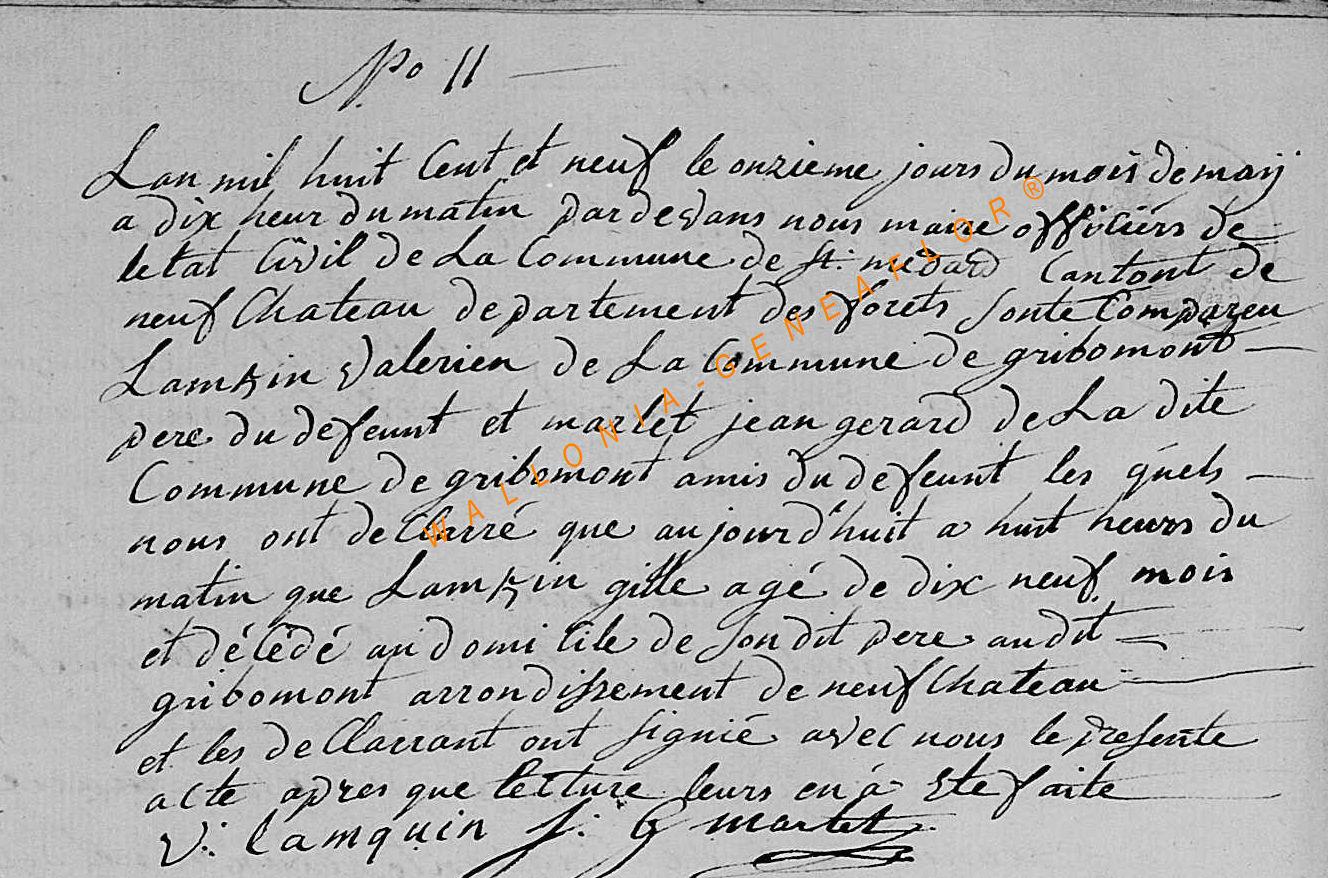 No 11
Lan mil huit Cent et neuf le onzieme jours du mois de maij
a dix heur du matin pardevans nous maire officiérs de
letat Civil de La Commune de St: médard Cantont de
neufChateau departement des forêts Sonte Compareu
Lamkin valerien de La Commune de gribomont
pere du defeunt et marlet jean gerard de La dite
Commune de gribomont amis du defeunt les quels
nous ont deClarré que aujourd'huit a huit heurs du
matin que Lamkin gille agé de dix neuf mois
et décédé au domicile de Son dit pere audit
gribomont arrondissement de neufChateau
et les deClarrant ont signié avec nous le presente
acte apres que lecture leurs en á Ete faite
V: lamquin J: G marlet
WALLONIA-GENEAFLOR®